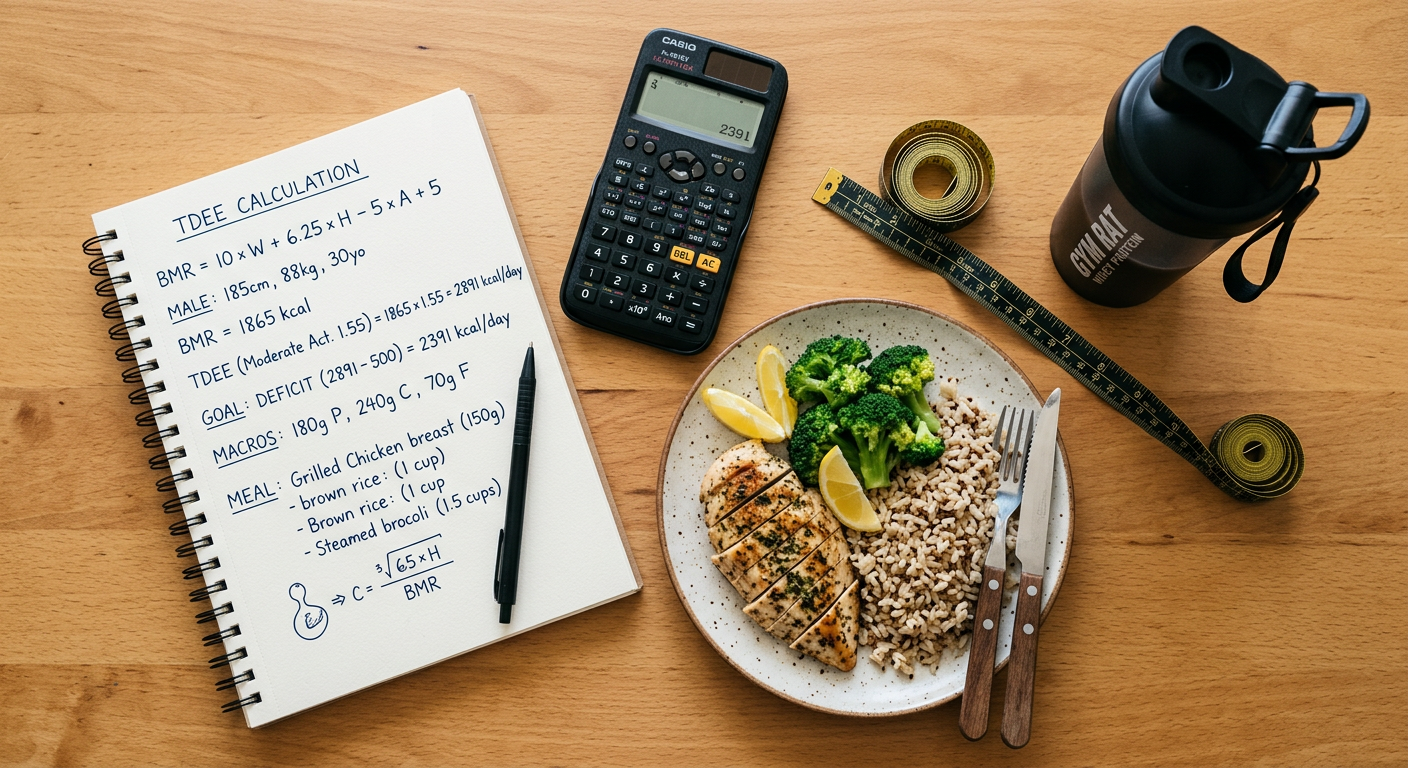 TDEE CALCULATION
BMR = 10 × W + 6.25 × H – 5 × A + 5
MALE: 185cm, 88kg, 30yo
BMR = 1865 kcal
TDEE (Moderate Act. 1.55) = 1865 x 1.55 = 2891 kcal/day
GOAL: DEFICIT (2891 - 500) = 2391 kcal/day
MACROS: 180g P, 240g C, 70g F
MEAL: Grilled Chicken breast (150g)
- brown rice: (1 cup)
- Brown rice: (1 cup
- Steamed brocoli (1.5 cups)
⇒ C = ³√65 × H / BMR
CASIO
2391
7 8 9 GBL AC
4 5 6 × ÷
1 2 3 + −
0 · x10⁰ Ano =
GYM RAT
WHEY PROTEIN